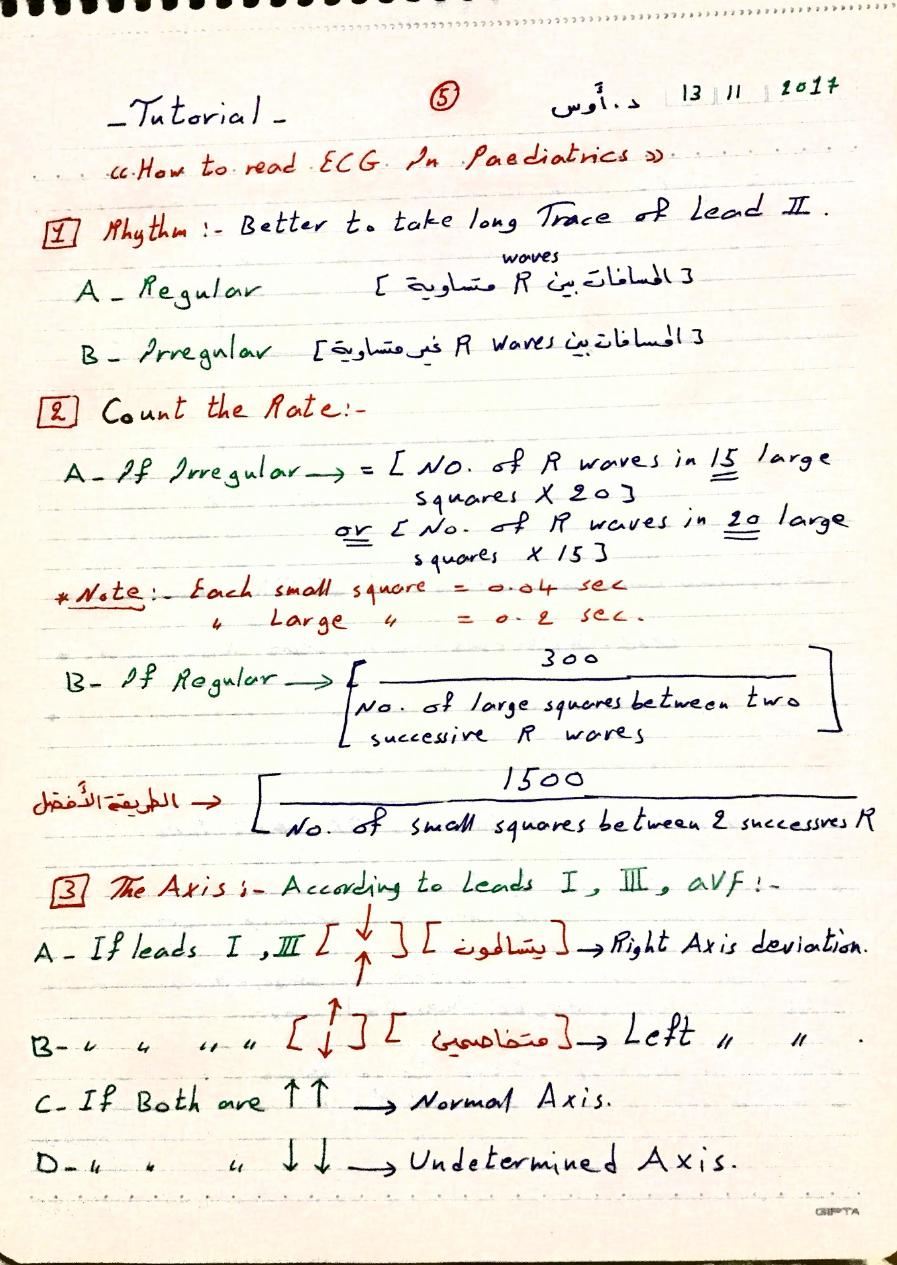 - Tutorial - ⑤ د. أوس 13 | 11 | 2017
<< How to read ECG In Paediatrics >>
1 Rhythm :- Better to take long Trace of Lead II .
A - Regular [ المسافات بين R waves متساوية ]
B - Irregular [ المسافات بين R waves غير متساوية ]
2 Count the Rate :-
A - If Irregular → = [ No. of R waves in 15 large
squares X 20 ]
or [ No. of R waves in 20 large
squares X 15 ]
* Note :- Each small square = 0.04 sec
" Large " = 0.2 sec.
B - If Regular → [ 300
No. of large squares between two
successive R waves ]
الطريقة الأفضل → [ 1500
No. of small squares between 2 successves R
3 The Axis :- According to Leads I , III , aVF :-
A - If leads I , III [ ↓ ↑ ] [ يتسالمون ] → Right Axis deviation.
B - " " " " [ ↑ ↓ ] [ متخاصمين ] → Left " " .
C - If Both are ↑ ↑ → Normal Axis.
D - " " " ↓ ↓ → Undetermined Axis.
GIPTA